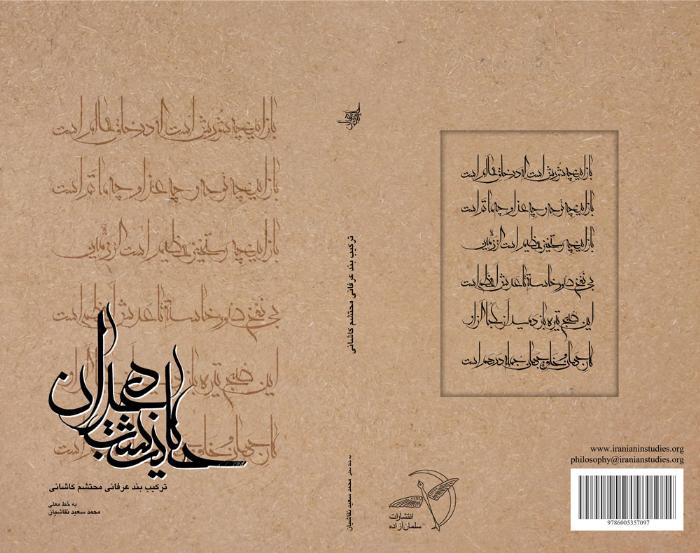 باز این چه شورش است که در خلق عالم است
باز این چه نوحه و چه عزا و چه ماتم است
باز این چه رستخیز عظیم است کز زمین
بی نفخ صور خاسته تا عرش اعظم است
این صبح تیره باز دمید از کجا کزو
کار جهان و خلق جهان جمله در هم است
حکایت شب هجران
ترکیب بند عرفانی محتشم کاشانی
به خط معلی
محمد سعید نقاشیان
ترکیب بند عرفانی محتشم کاشانی
به خط معلی محمد سعید نقاشیان
انتشارات
سلمان آزاده
باز این چه شورش است که در خلق عالم است
باز این چه نوحه و چه عزا و چه ماتم است
باز این چه رستخیز عظیم است کز زمین
بی نفخ صور خاسته تا عرش اعظم است
این صبح تیره باز دمید از کجا کزو
کار جهان و خلق جهان جمله در هم است
www.iranianinstudies.org
philosophy@iranianstudies.org
9786005357097